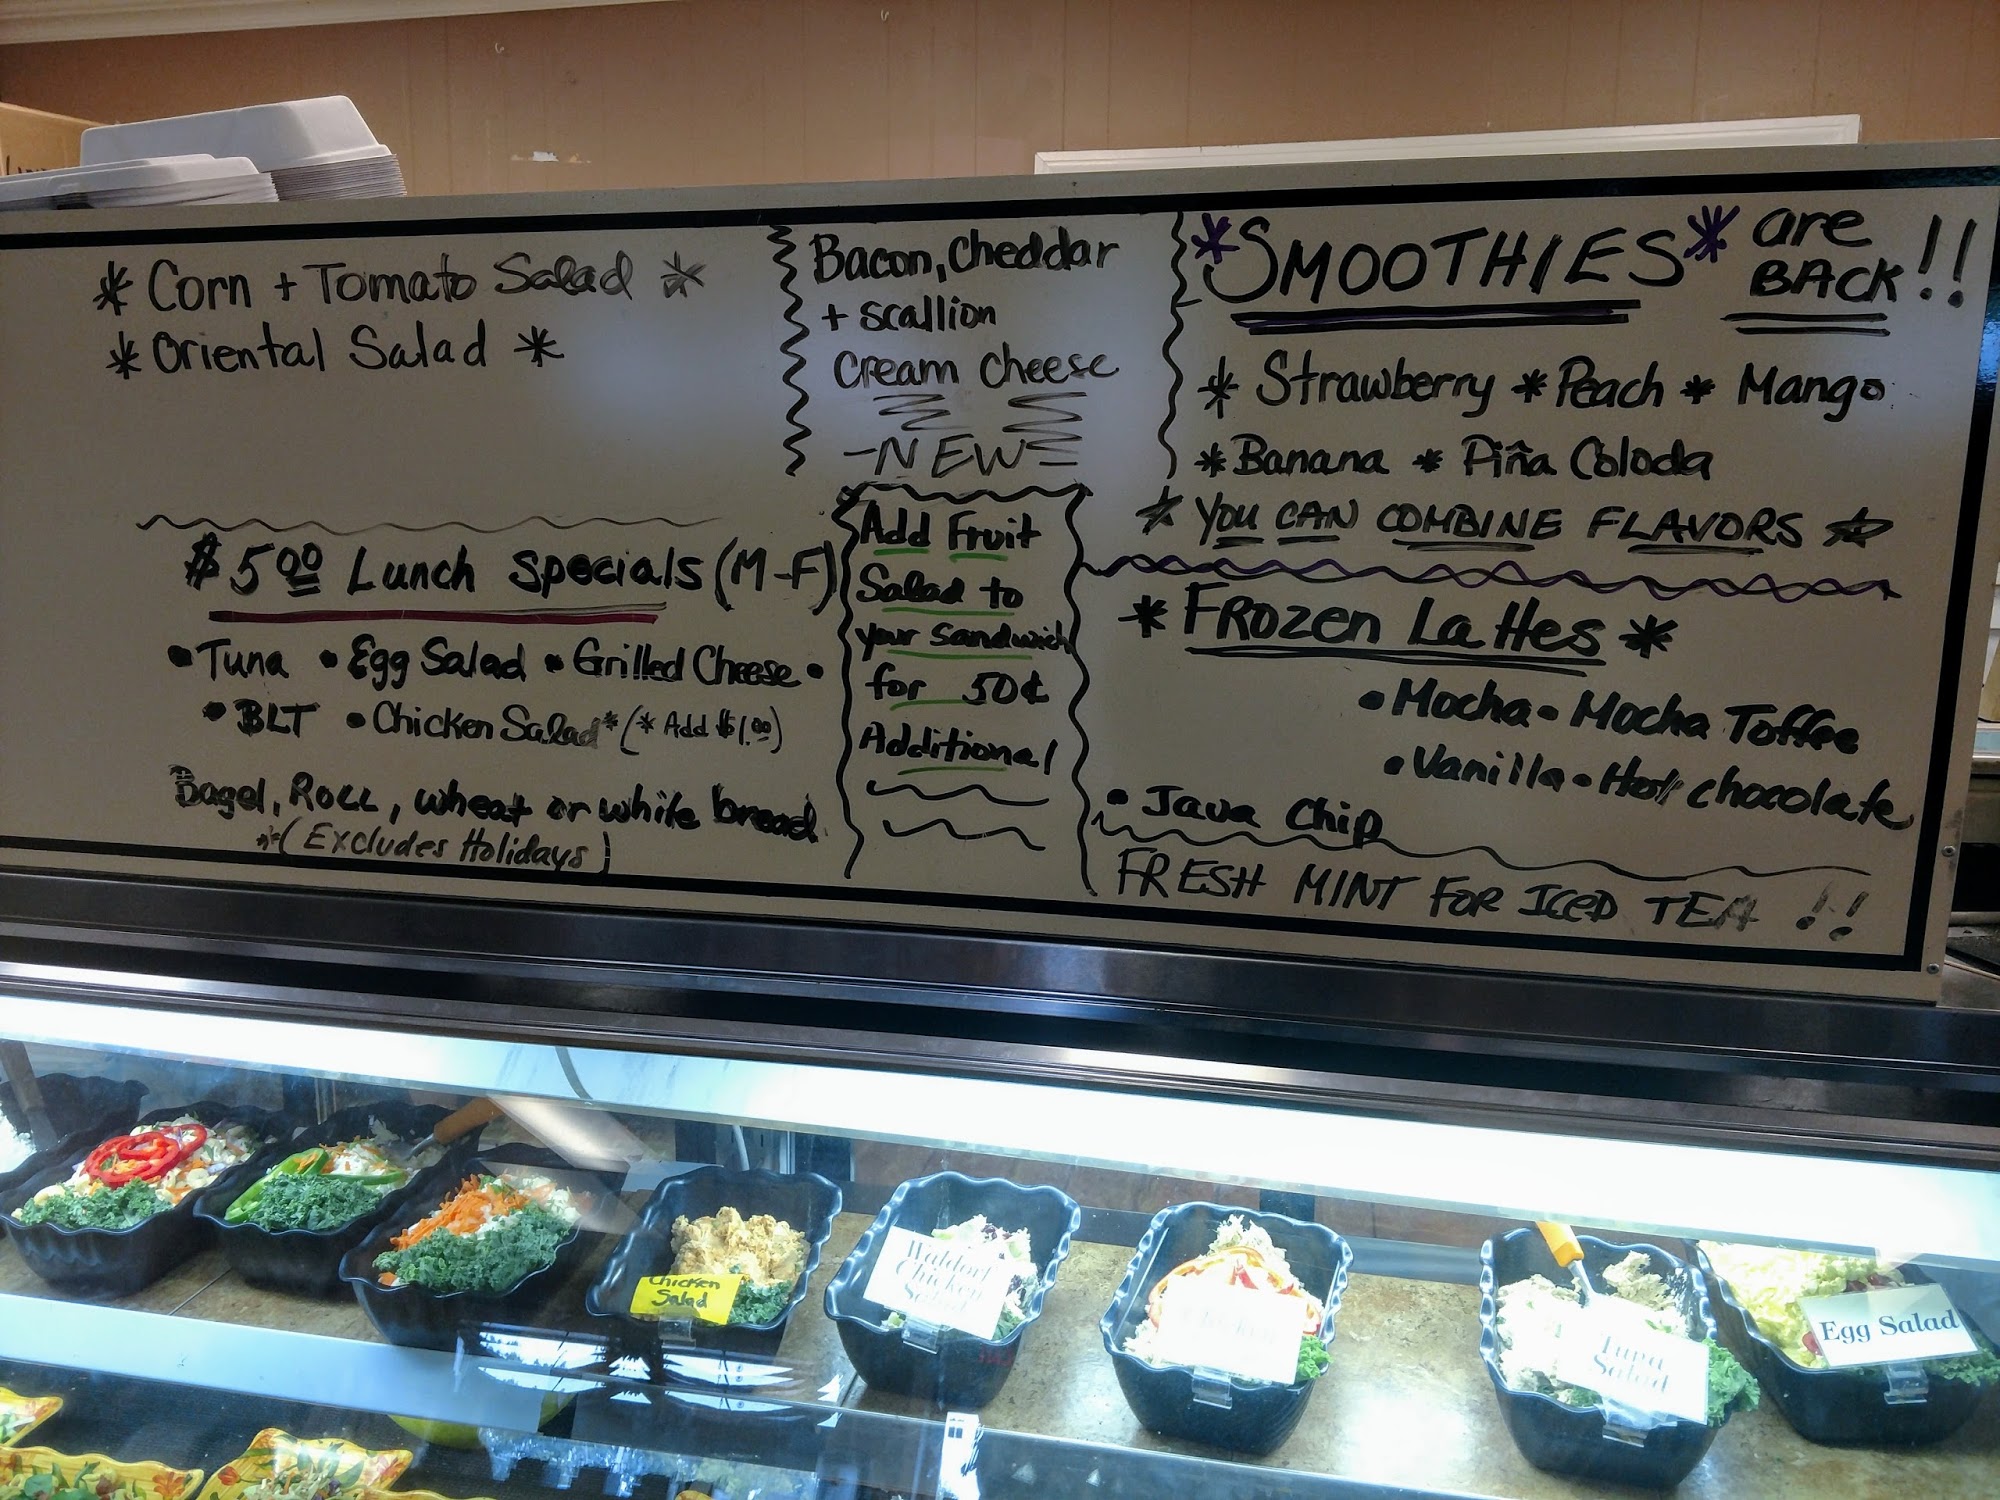 * Corn + Tomato Salad *
* Oriental Salad *
$5.00 Lunch Specials (M-F)
• Tuna • Egg Salad • Grilled Cheese •
• BLT • Chicken Salad* (* Add $1.00)
Bagel, Roll, wheat or white bread
*(Excludes Holidays)
Bacon, Cheddar
+ scallion
Cream Cheese
-NEW-
Add Fruit
Salad to
your Sandwich
for 50¢
Additional
*SMOOTHIES* are
BACK!!
* Strawberry * Peach * Mango
* Banana * Piña Coloda
* YOU CAN COMBINE FLAVORS *
* FROZEN LaTTes *
• Mocha • Mocha Toffee
• Vanilla • Hot chocolate
• Java Chip
FRESH MINT FOR ICED TEA !!
Chicken
Salad
Waldorf
Chicken
Salad
Chicken
Tuna
Salad
Egg Salad